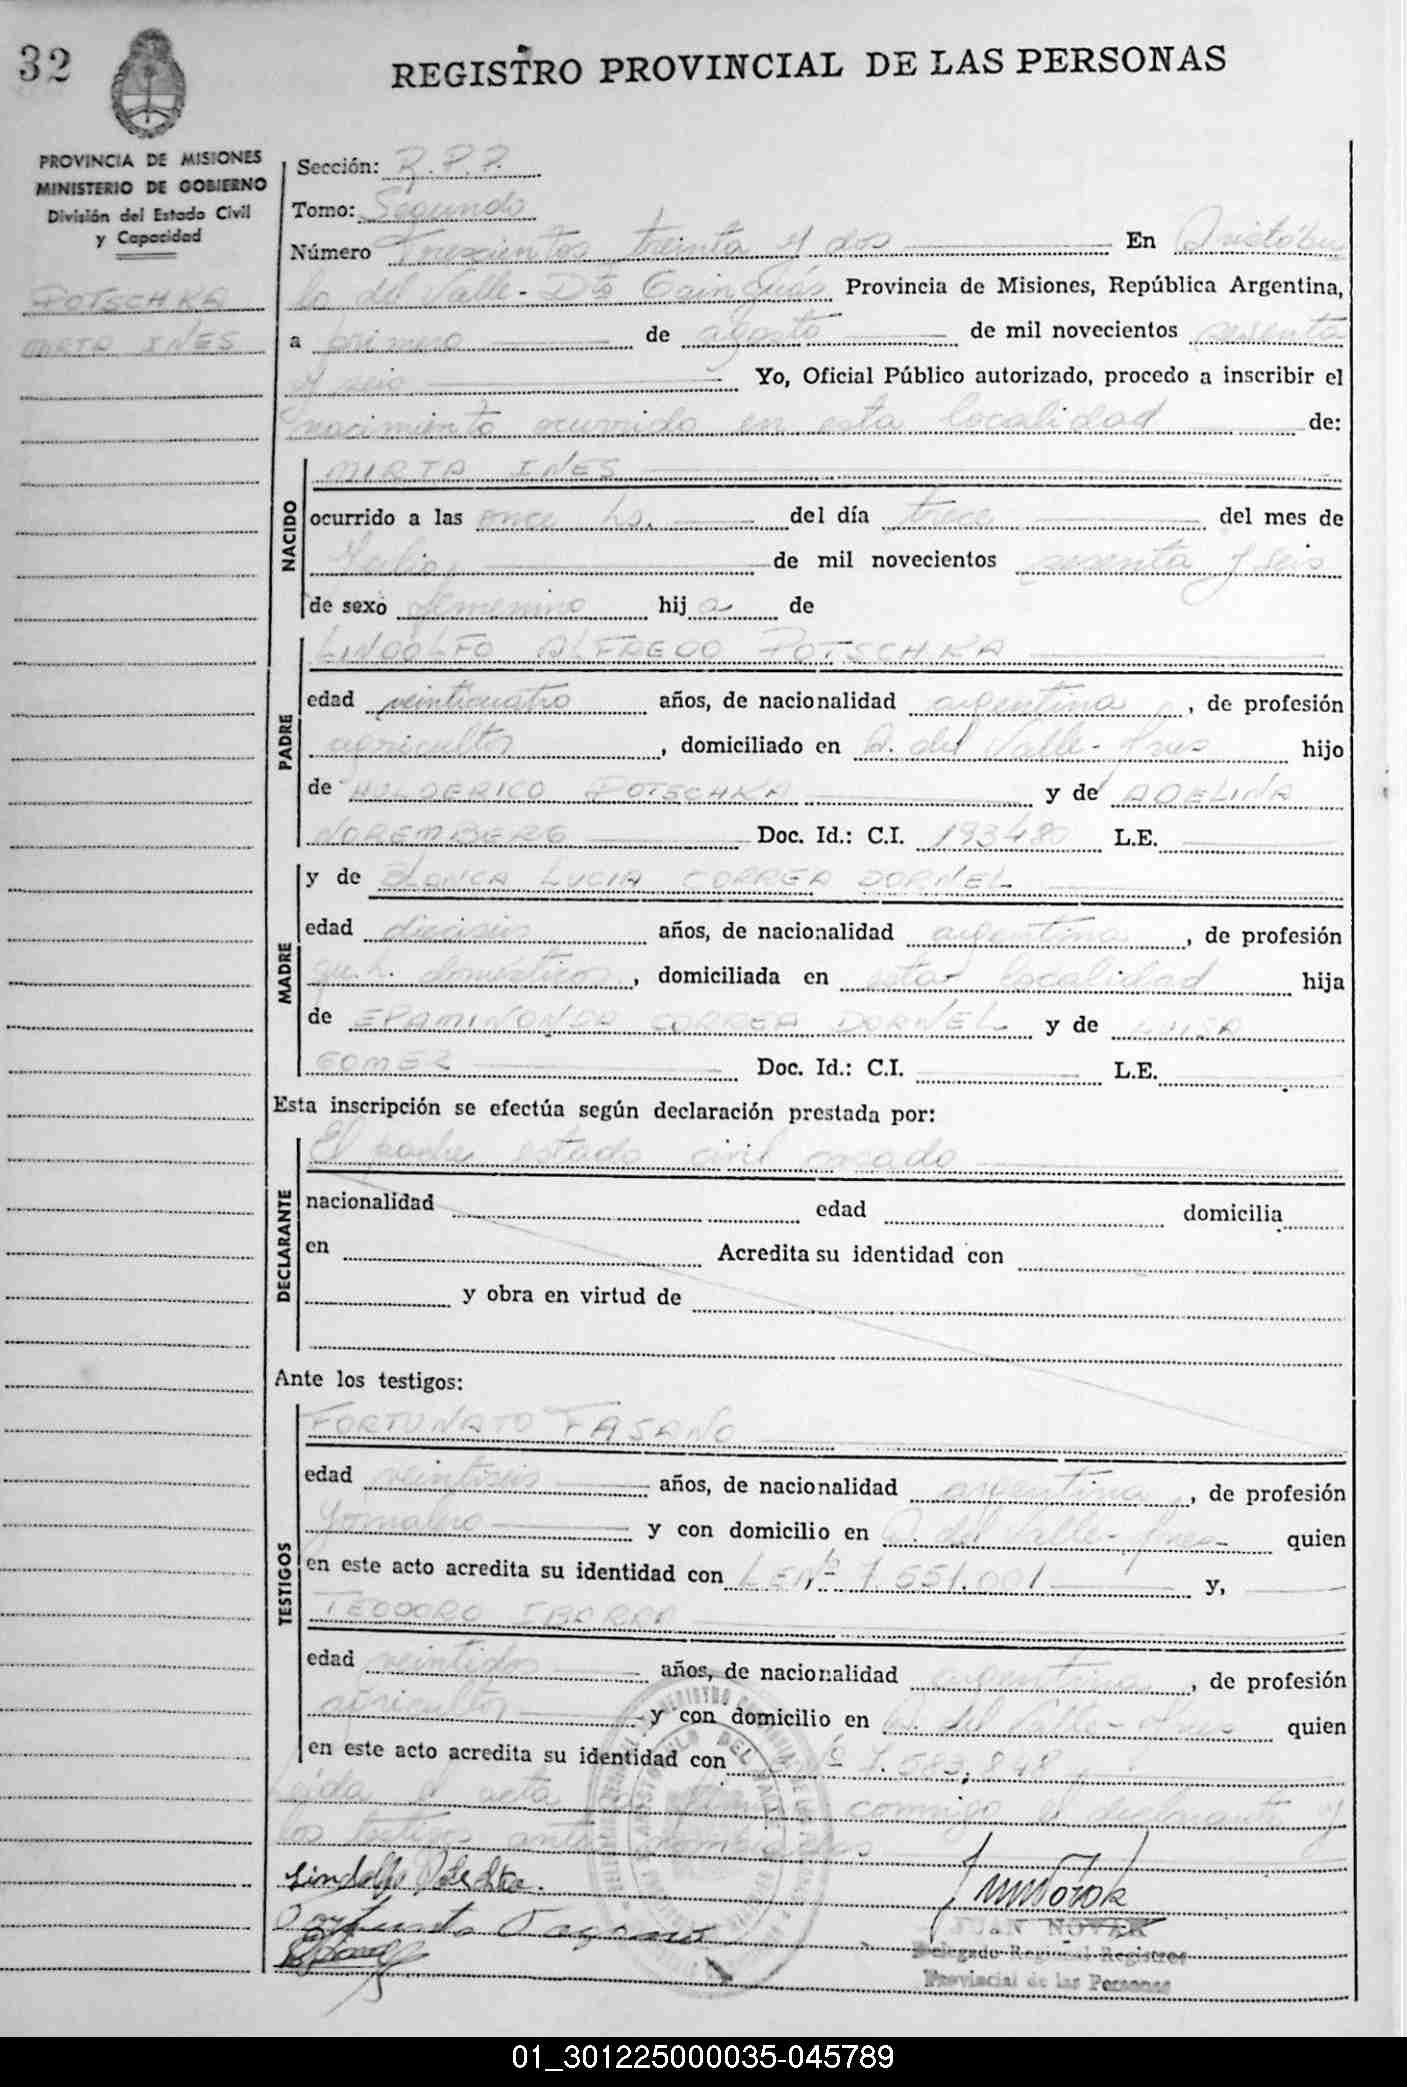 32
REGISTRO PROVINCIAL DE LAS PERSONAS
PROVINCIA DE MISIONES
MINISTERIO DE GOBIERNO
División del Estado Civil
y Capacidad
POTSCHKA
MIRTA INES
Sección: R.P.P.
Tomo: Segundo
Número Trescientos treinta y dos En Aristóbu
lo del Valle - Dto Cainguás Provincia de Misiones, República Argentina,
a primero de agosto de mil novecientos sesenta
y seis Yo, Oficial Público autorizado, procedo a inscribir el
nacimiento ocurrido en esta localidad de:
NACIDO
MIRTA INES
ocurrido a las once hs. del día trece del mes de
Julio de mil novecientos sesenta y seis
de sexo femenino hija de
PADRE
LINDOLFO ALFREDO POTSCHKA
edad veinticuatro años, de nacionalidad argentina, de profesión
agricultor, domiciliado en A. del Valle - Mnes hijo
de HULDERICO POTSCHKA y de ADELINA
NOREMBERG Doc. Id.: C.I. 193480 L.E.
MADRE
y de BLANCA LUCIA CORREA DORNEL
edad dieciseis años, de nacionalidad argentina, de profesión
qu. h. domésticos, domiciliada en esta localidad hija
de EPAMINONDA CORREA DORNEL y de
GOMEZ Doc. Id.: C.I. L.E.
Esta inscripción se efectúa según declaración prestada por:
DECLARANTE
El padre estado civil casado
nacionalidad edad domicilia
en Acredita su identidad con
y obra en virtud de
Ante los testigos:
TESTIGOS
FORTUNATO FASANO
edad veintiseis años, de nacionalidad argentina, de profesión
Jornalero y con domicilio en A. del Valle - Mnes - quien
en este acto acredita su identidad con L.E. Nº 7.551.001 y,
TEODORO IBARRA
edad veintidos años, de nacionalidad argentina, de profesión
agricultor y con domicilio en A. del Valle - Mnes quien
en este acto acredita su identidad con Nº 7.583.848
Leída el acta la firman conmigo el declarante y
los testigos antes nombrados
Lindolfo Potschka.
Fortunato Fasano
JUAN NOVAK
Delegado Regional Registros
Provincial de las Personas
01_301225000035-045789